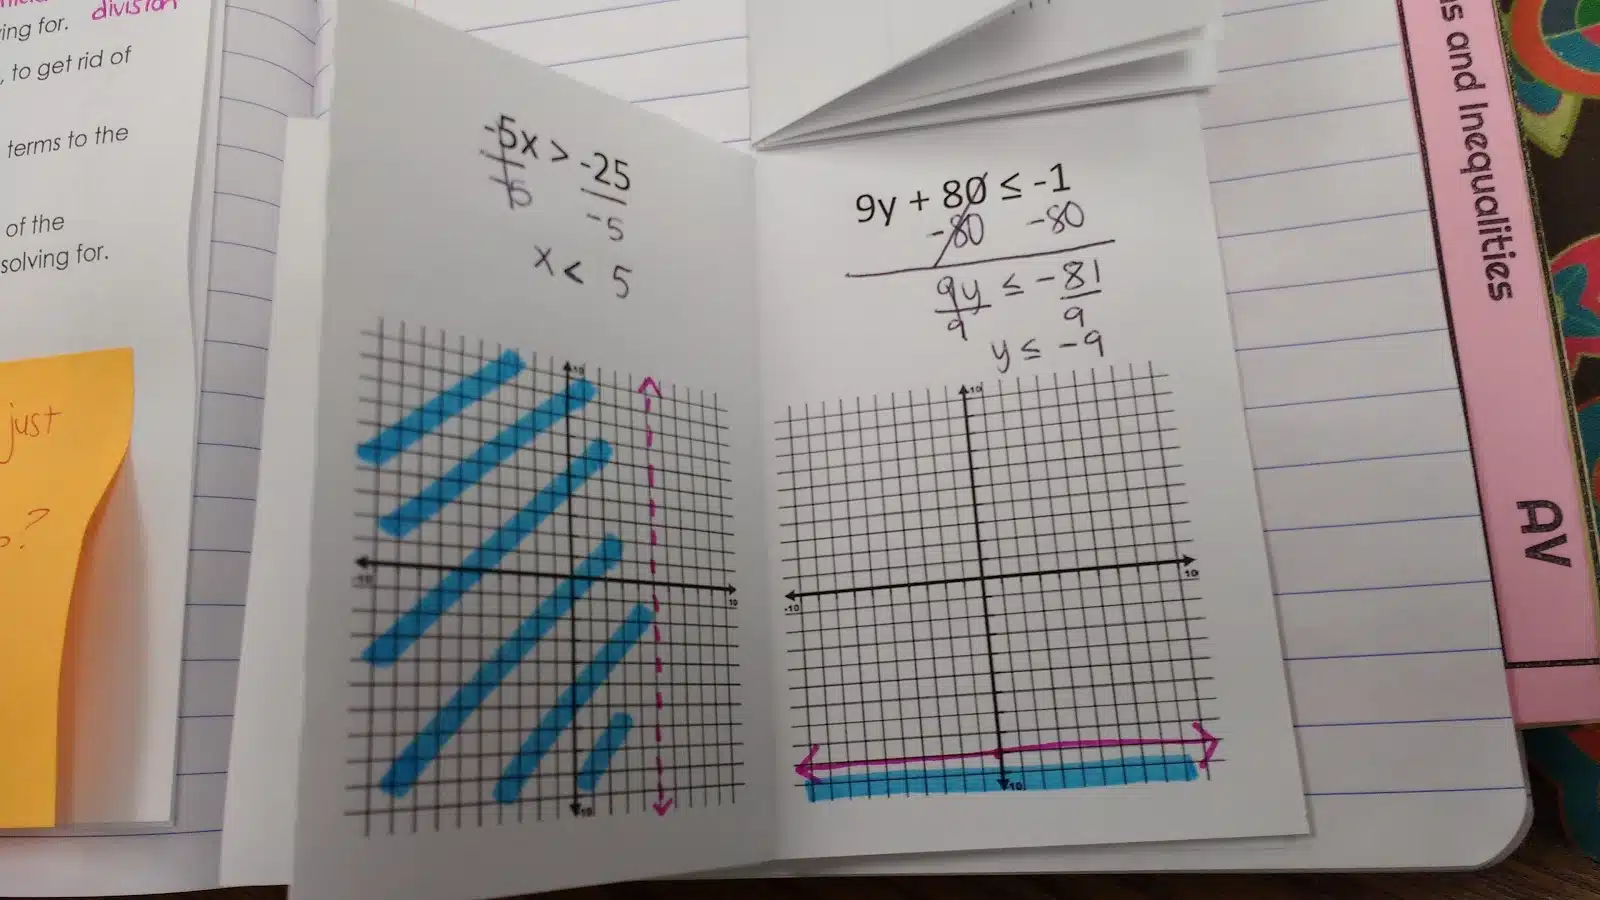 division
ing for.
, to get rid of
terms to the
of the
solving for.
just
?
-5x > -25
-5 -5
x < 5
10
-10 10
-10
9y + 80 ≤ -1
-80 -80
9y ≤ -81
9 9
y ≤ -9
10
-10 10
-10
s and Inequalities
AV